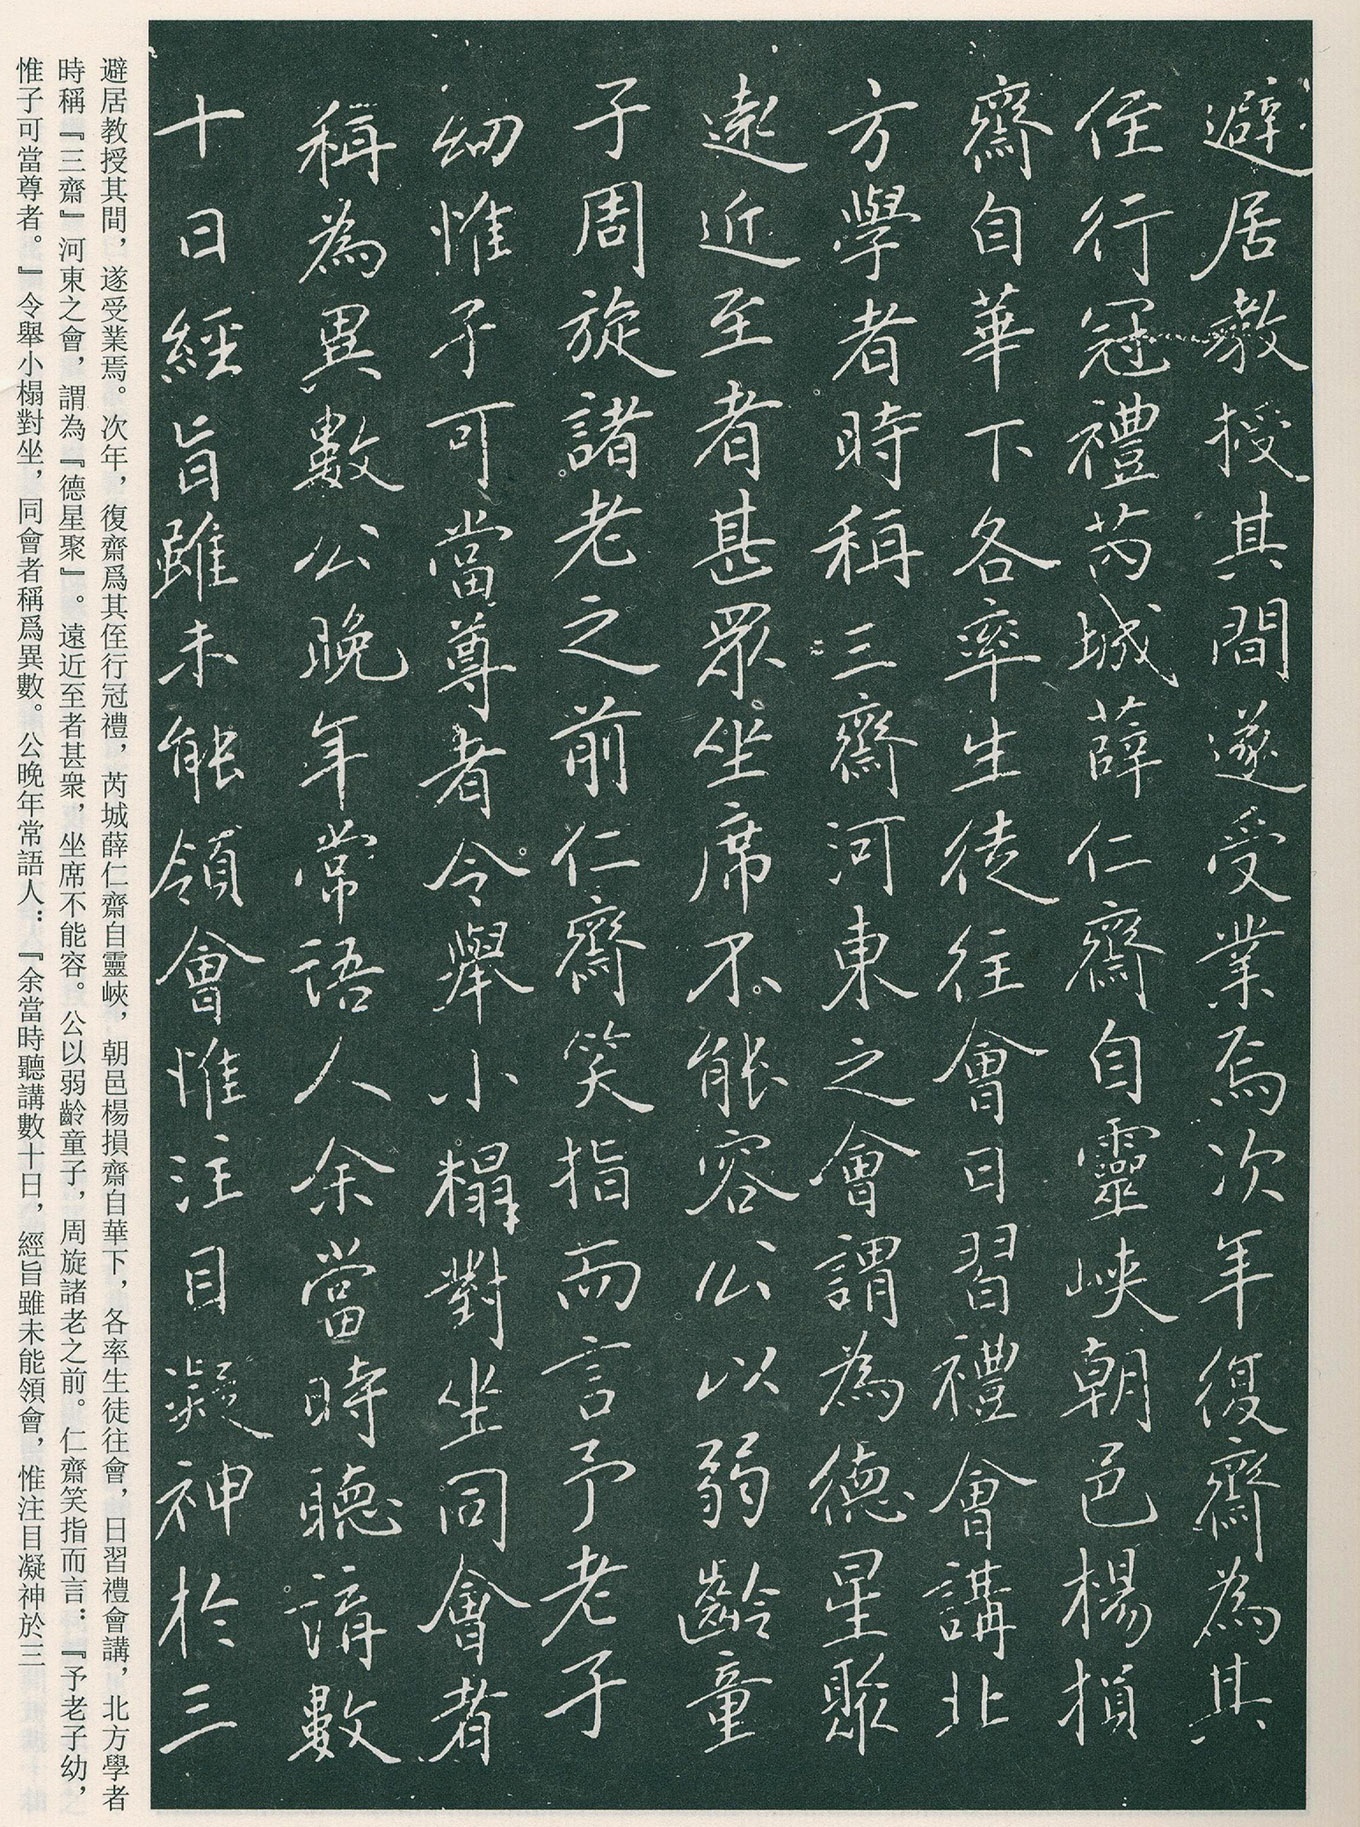 避居教授其間遂受業焉次年復齋為其
侄行冠禮芮城薛仁齋自靈峽朝邑楊損
齋自華下各率生徒往會日習禮會講北
方學者時稱三齋河東之會謂為德星聚
遠近至者甚眾坐席不能容公以弱齡童
子周旋諸老之前仁齋笑指而言予老子
幼惟子可當尊者令舉小榻對坐同會者
稱為異數公晚年常語人余當時聽講數
十日經旨雖未能領會惟注目凝神於三
避居教授其間，遂受業焉。次年，復齋爲其侄行冠禮，芮城薛仁齋自靈峽，朝邑楊損齋自華下，各率生徒往會，日習禮會講，北方學者
時稱『三齋』河東之會，謂為『德星聚』。遠近至者甚衆，坐席不能容。公以弱齡童子，周旋諸老之前。仁齋笑指而言：『予老子幼，
惟子可當尊者。』令舉小榻對坐，同會者稱爲異數。公晚年常語人：『余當時聽講數十日，經旨雖未能領會，惟注目凝神於三